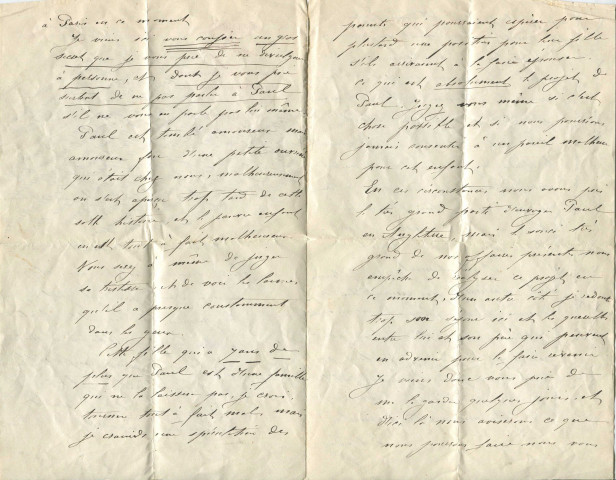 à Paris en ce moment
Je viens ici vous confier un gros
secret que je vous prie de ne divulguer
à personne, et dont je vous prie
surtout de ne pas parler à Paul
s'il ne vous en parle pas lui même
Paul est tombé amoureux mais
amoureux fou d'une petite ouvrière
qui était chez nous, malheureusement
on s'est aperçu trop tard de cette
sotte histoire, et le pauvre enfant
en est tout à fait malheureux
Vous serez à même de juger
sa tristesse, et de voir les larmes
qu'il a presque constamment
dans les yeux.
Cette fille qui a 7 ans de
plus que Paul est d'une famille
qui ne la laissera pas, je crois,
tourner tout à fait mal, mais
je craindrais une spéculation des
parents qui pourraient espérer pour
plus tard une position pour leur fille
s'ils arrivaient à la faire épouser
ce qui est absolument le projet de
Paul. Jugez vous même si c'est
chose possible et si nous pouvions
jamais consentir à un pareil malheur
pour cet enfant.
En ces circonstances nous avons pris
le très grand parti d'envoyer Paul
en Angleterre, mais le souci très
grand de nos affaires présentes nous
empêche de réaliser ce projet en
ce moment. D'un autre côté je redoute
trop son séjour ici et les querelles
entre lui et son père qui peuvent
en advenir pour le faire revenir
Je viens donc vous prier de
me le garder quelques jours, et
d'ici là nous aviserons ce que
nous pourrons faire nous vous